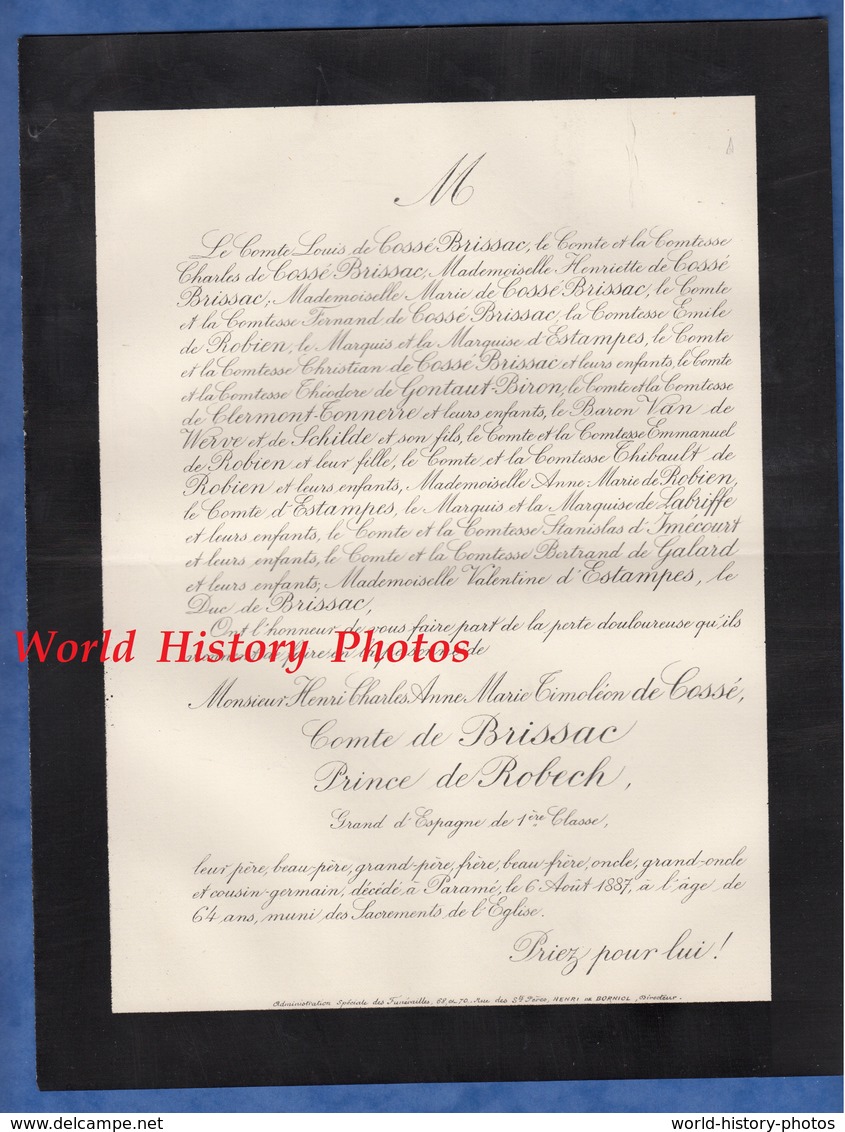 M
Le Comte Louis de Cossé Brissac, le Comte et la Comtesse
Charles de Cossé Brissac, Mademoiselle Henriette de Cossé
Brissac, Mademoiselle Marie de Cossé Brissac, le Comte
et la Comtesse Fernand de Cossé Brissac, la Comtesse Emile
de Robien, le Marquis et la Marquise d'Estampes, le Comte
et la Comtesse Christian de Cossé Brissac et leurs enfants, le Comte
et la Comtesse Théodore de Gontaut-Biron, le Comte et la Comtesse
de Clermont-Tonnerre et leurs enfants, le Baron Van de
Werve et de Schilde et son fils, le Comte et la Comtesse Emmanuel
de Robien et leur fille, le Comte et la Comtesse Thibault de
Robien et leurs enfants, Mademoiselle Anne Marie de Robien,
le Comte d'Estampes, le Marquis et la Marquise de Labriffe
et leurs enfants, le Comte et la Comtesse Stanislas d'Imécourt
et leurs enfants, le Comte et la Comtesse Bertrand de Galard
et leurs enfants; Mademoiselle Valentine d'Estampes, le
Duc de Brissac,
Ont l'honneur de vous faire part de la perte douloureuse qu'ils
World History Photos
de
Monsieur Henri Charles Anne Marie Timoléon de Cossé,
Comte de Brissac
Prince de Robech,
Grand d'Espagne de 1ère Classe,
leur père, beau-père, grand-père, frère, beau-frère, oncle, grand-oncle
et cousin-germain, décédé à Paramé, le 6 Août 1887, à l'âge de
64 ans, muni des Sacrements de l'Eglise.
Priez pour lui!
Administration Spéciale des Funérailles, 68 et 70, Rue des Sts Pères, HENRI DE BORNIOL, Directeur.
world-history-photos